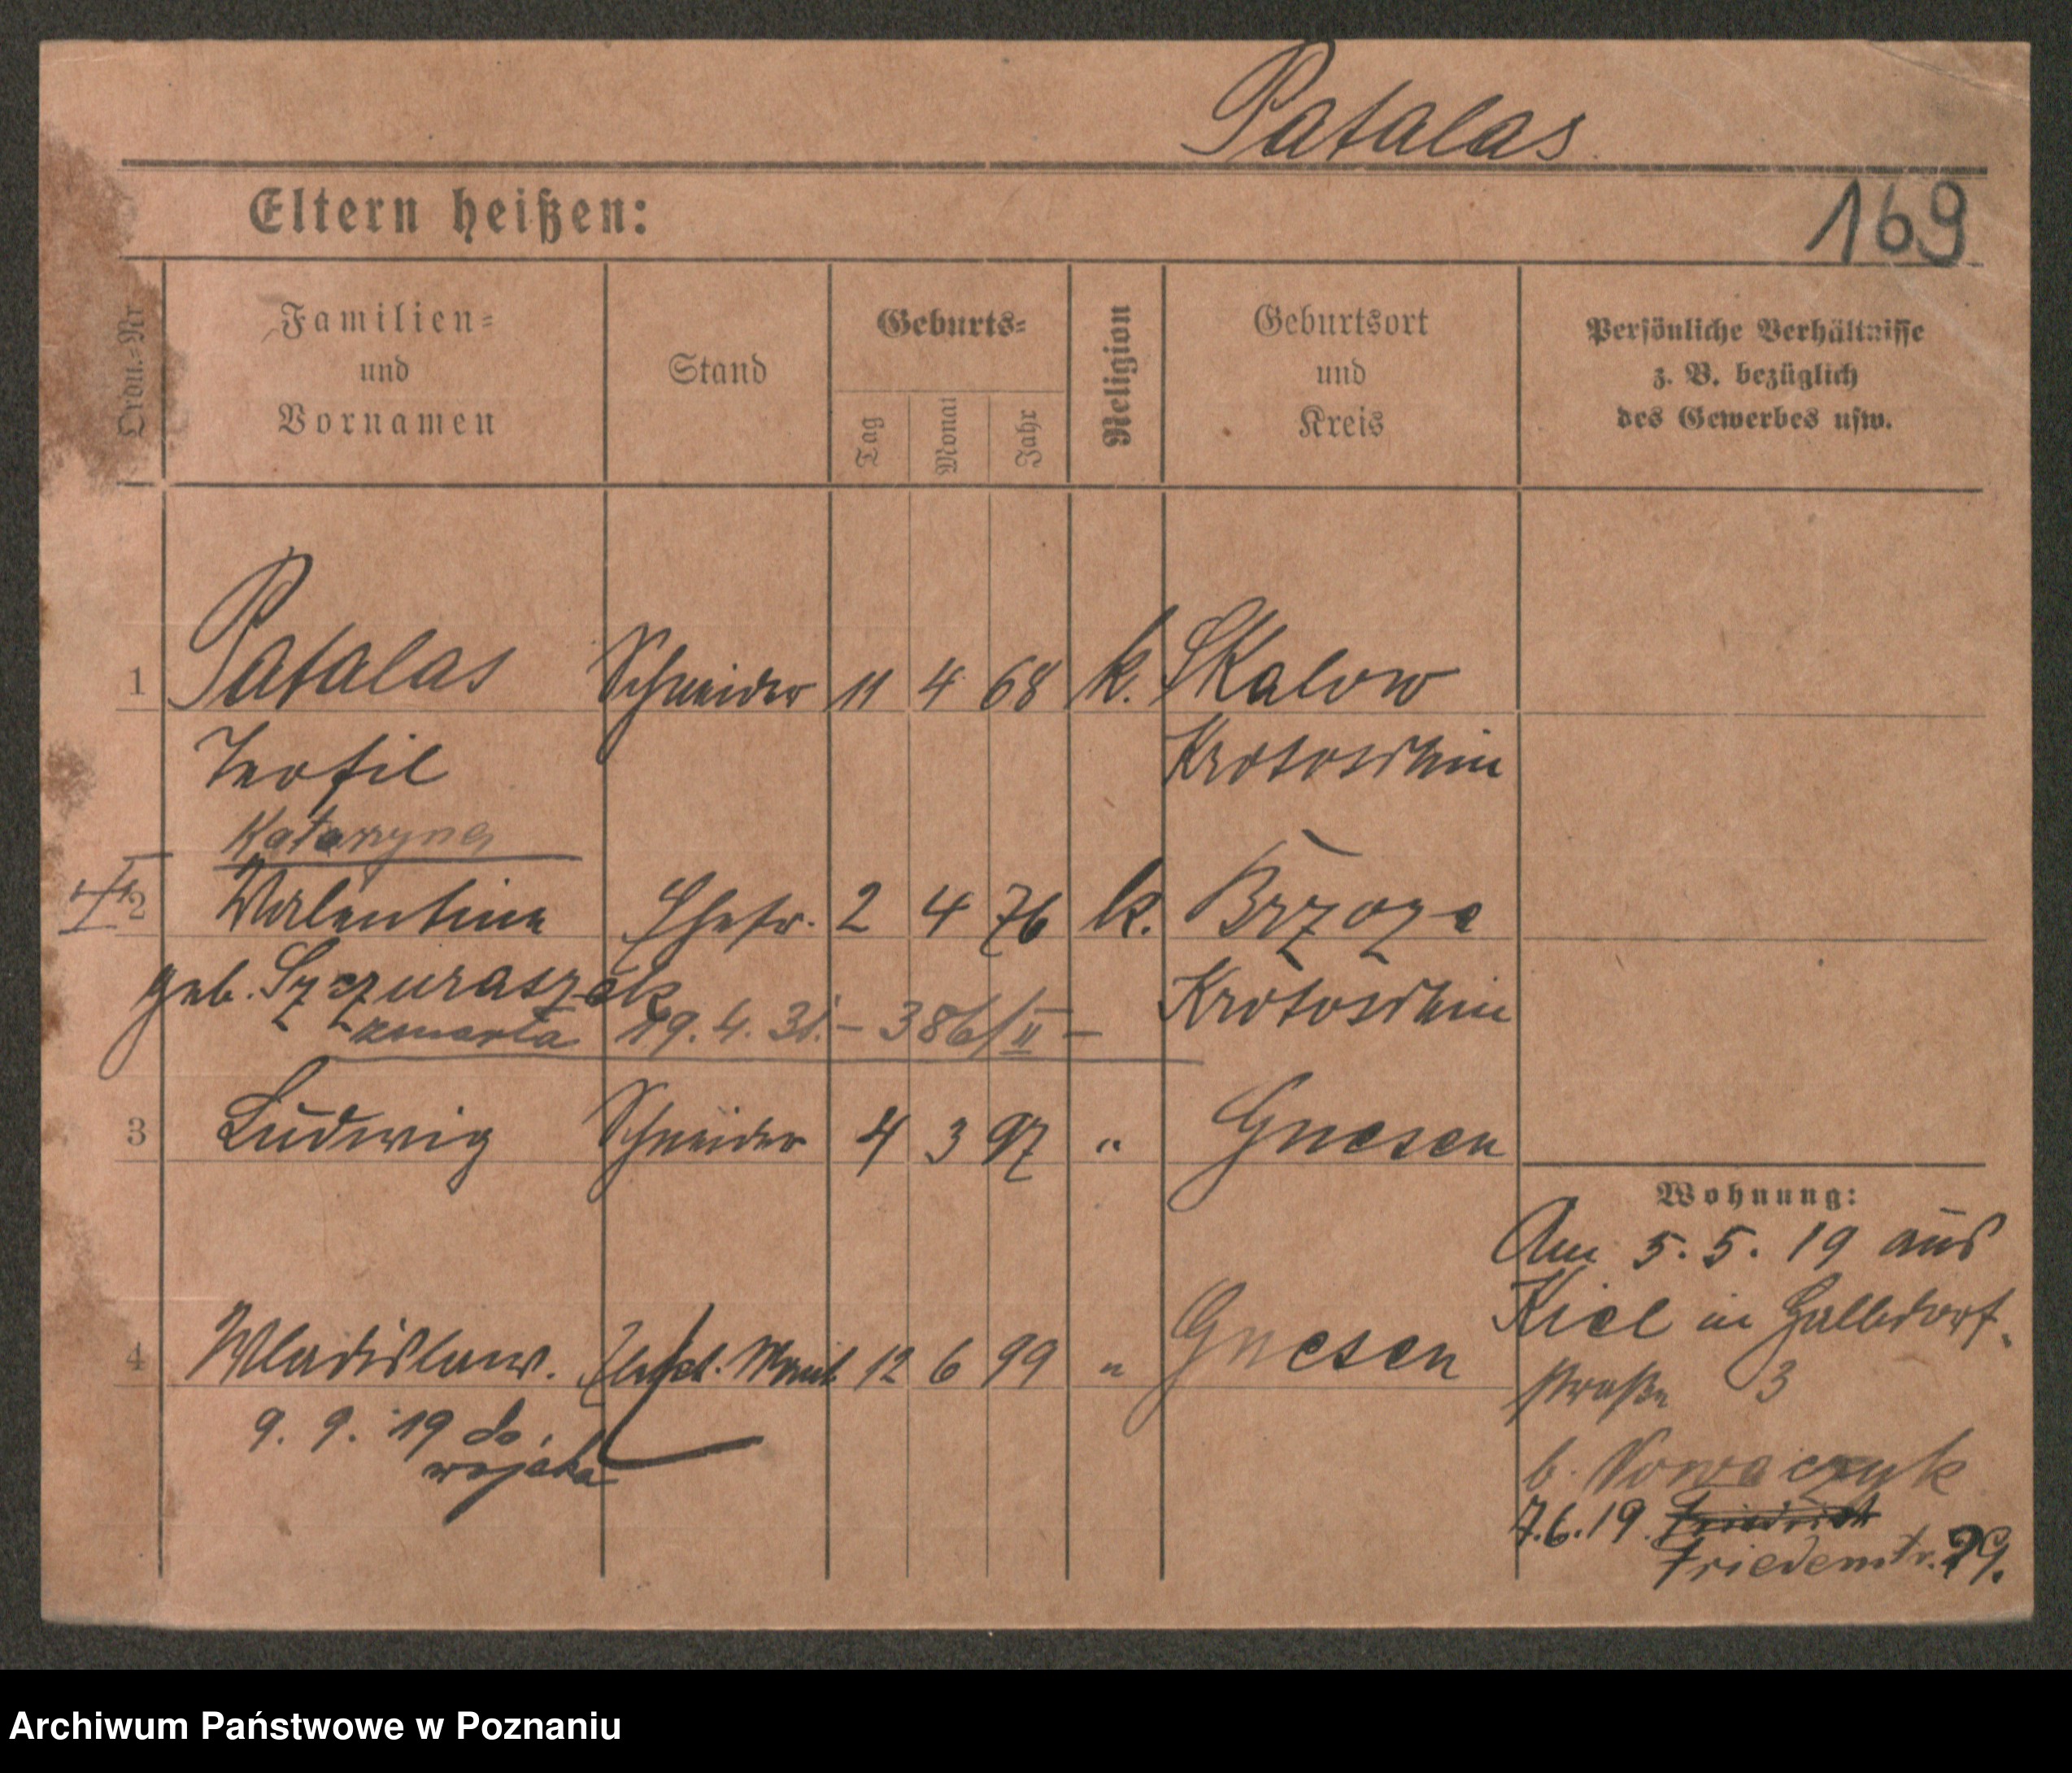 Patalas
Eltern heißen:
169
Ordn.-Nr
Familien-
und
Vornamen
Stand
Geburts-
Tag
Monat
Jahr
Religion
Geburtsort
und
Kreis
Persönliche Verhältnisse
z. B. bezüglich
des Gewerbes usw.
1 Patalas Schneider 11 4 68 k. Skalow
Teofil Krotoschin
Katarzyna
2 Valentine Ehefr. 2 4 76 k. Brzoza
geb. Szczuraszek Krotoschin
zmarła 19. 4. 31. – 386/II –
3 Ludwig Schneider 4 3 97 " Gnesen
Wohnung:
Am 5. 5. 19 aus
Kiel in
4 Wladislaw. 12 6 99 " Gnesen
straße 3
9. 9. 19 do
wojska
b. Nowaczyk
7.6.19. Friedrich
Friedenstr. 29.
Archiwum Państwowe w Poznaniu